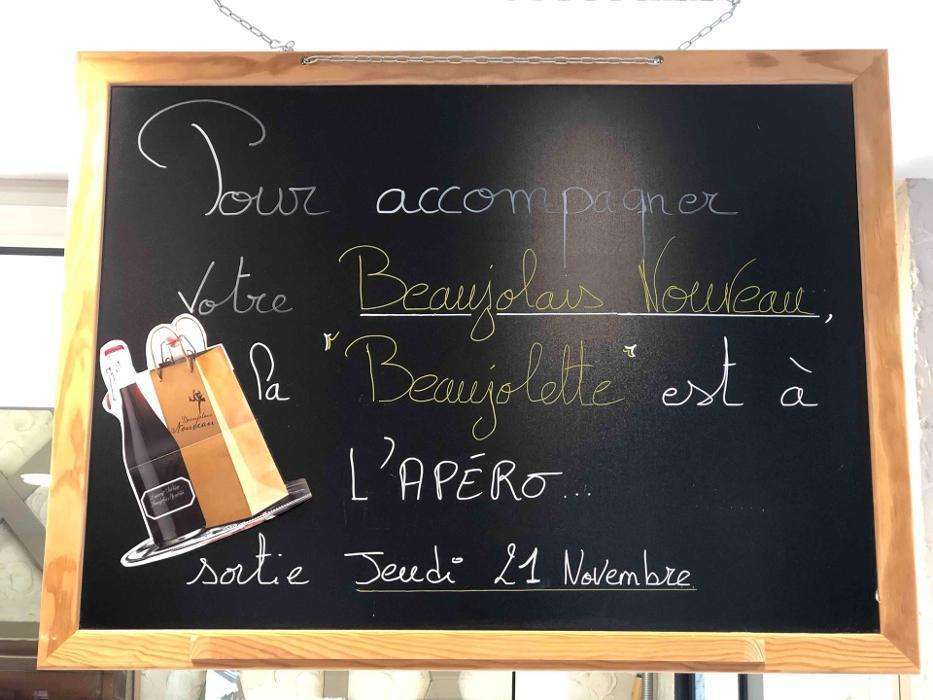 Pour accompagner
votre Beaujolais Nouveau,
la "Beaujolette" est à
L'APÉRO...
sortie Jeudi 21 Novembre
Beaujolais
Nouveau